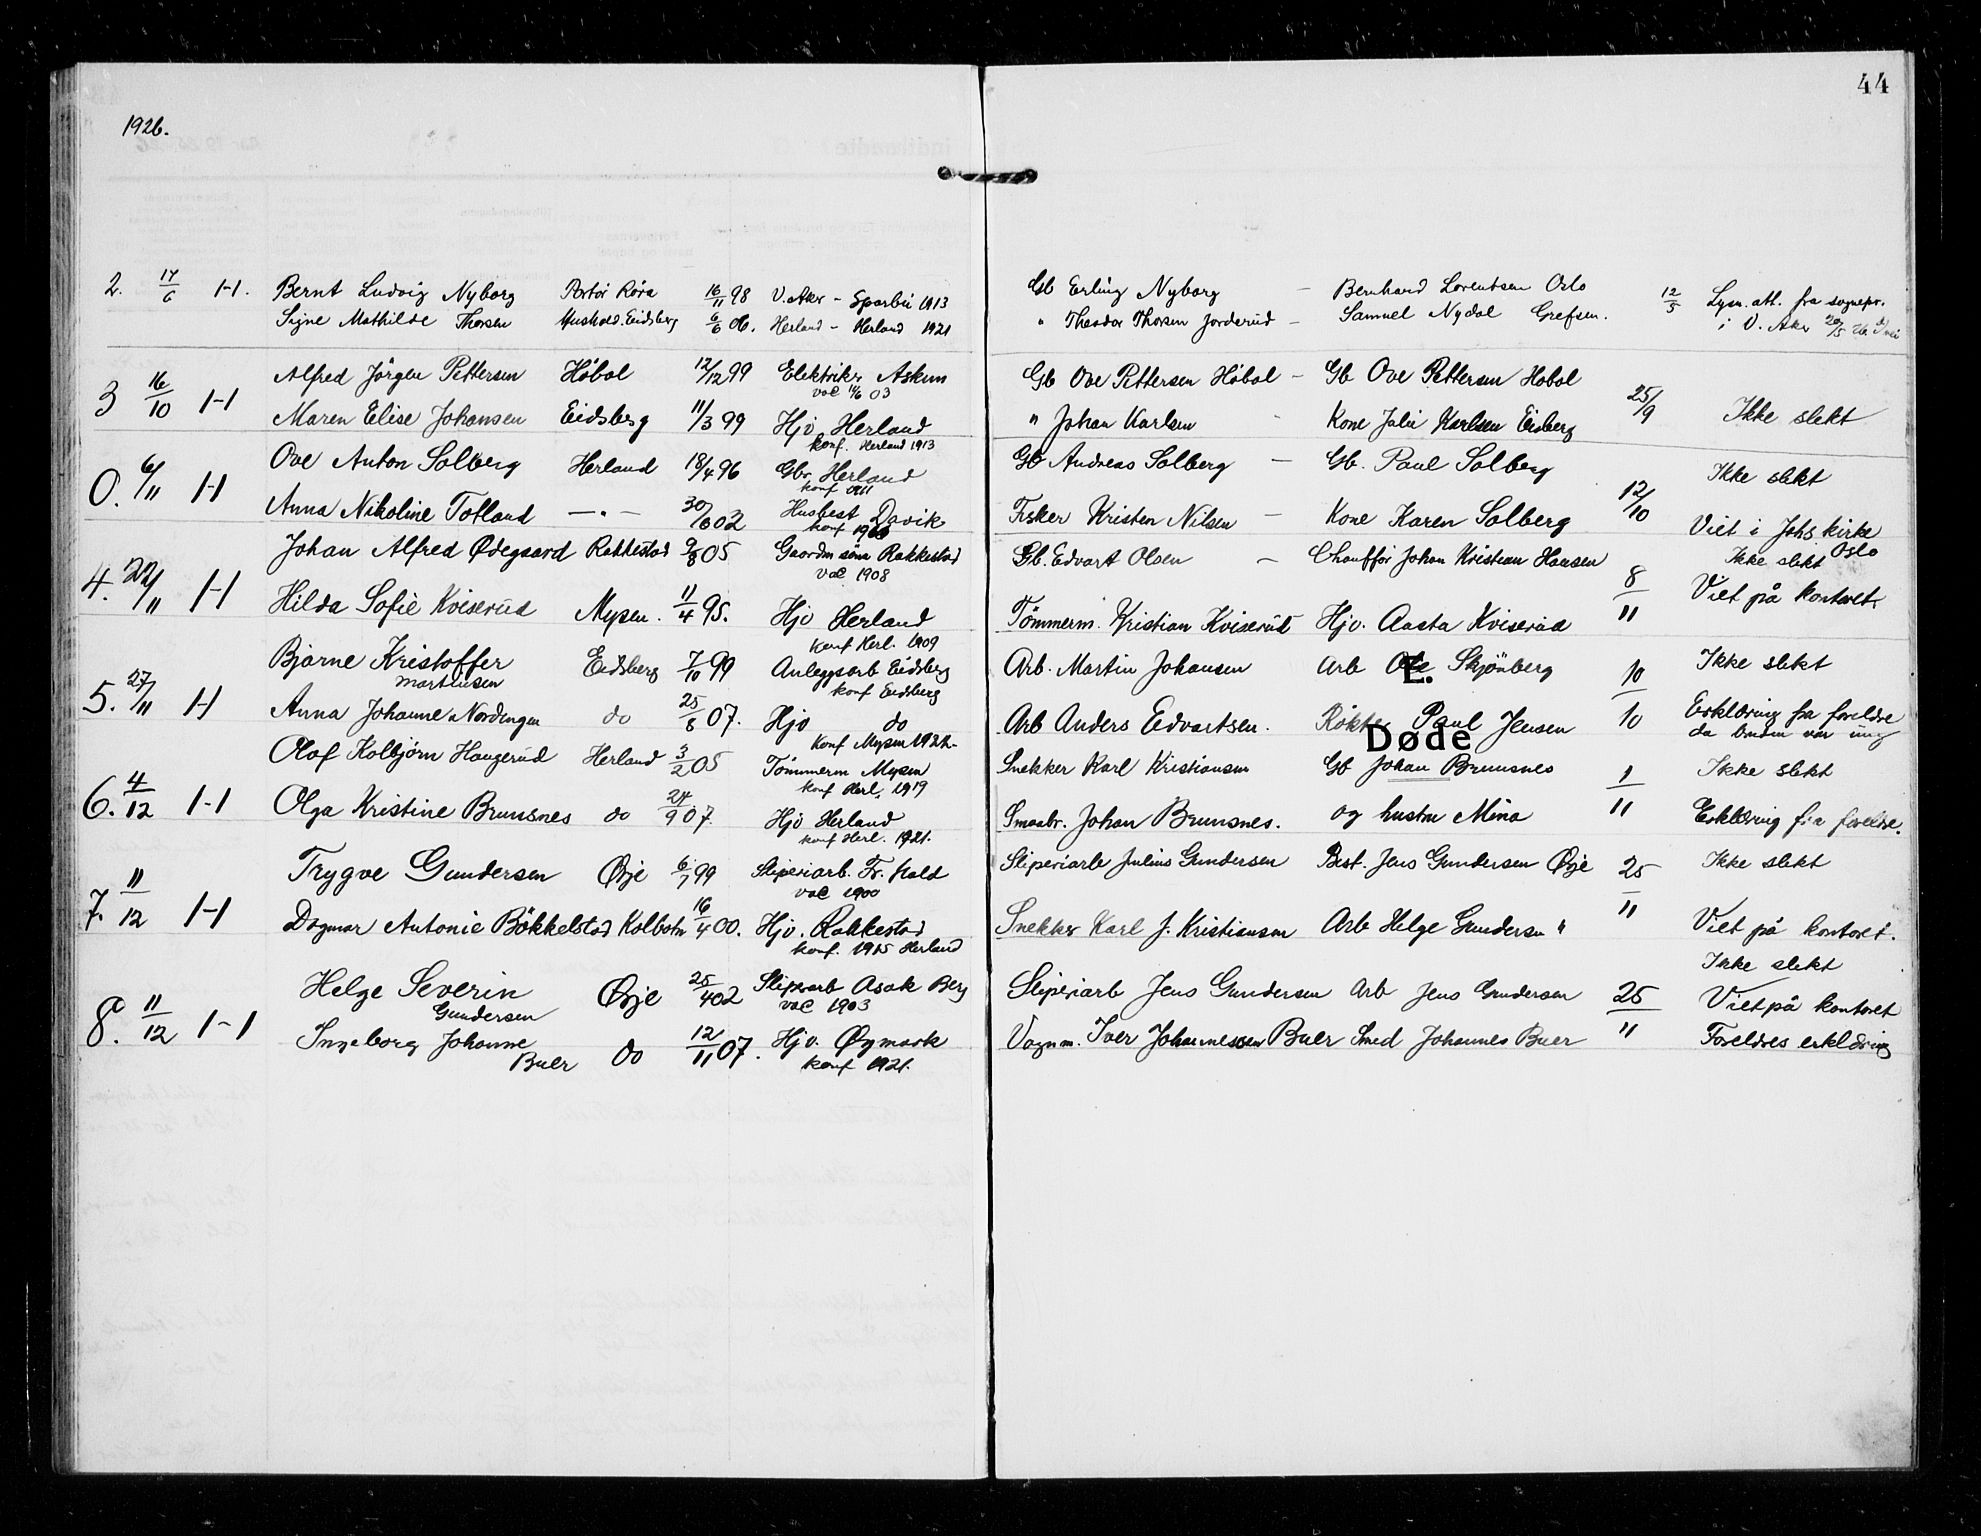 44
1926.
2. 17/6 1-1. Bernt Ludvig Nyborg Portör Röra 16/11 98 V. Aker - Sparbu 1913 Gb Erling Nyborg - Bernhard Lorentsen Oslo 12/5 Lysn. att. fra sognepr.
Signe Mathilde Thorsen Hushold. Eidsberg 6/6 06. Herland - Herland 1921 " Theodor Thorsen Jorderud - Samuel Nydal Grefsen. i V. Aker 20/5 26
3 16/10 1-1 Alfred Jörgen Pettersen Höbol 12/12 99 Elektriker Askim Gb Ove Pettersen Höbol - Gb Ove Pettersen Hobol 25/9 Ikke slekt
vac 11/6 03
Maren Elise Johansen Eidsberg 11/3 99 Hjv Herland " Johan Karlsen - Kone Julie Karlsen Eisberg
konf. Herland 1913
0. 6/11 1-1 Ove Anton Solberg Herland 18/4 96 Gbr Herland Gb Andreas Solberg - Gb. Paul Solberg 12/10 Ikke slekt
konf 1911
Anna Nikoline Totland - " - 30/6 02 Husbest Davik Fisker Kristen Nilsen - Kone Karen Solberg Viet i Johs. kirke Oslo
konf
4. 22/11 1-1 Johan Alfred Ødegaard Rakkestad 9/8 05 Gaardm söns Rakkestad Gb. Edvart Olsen - Chauffør Johan Kristian Hansen 8/11 Ikke slekt
vac 1908
Viet på kontoret.
Hilda Sofie Kviserud Mysen. 11/4 95. Hjv Herland Tömmerm. Kristian Kviserud Hjv. Aasta Kviserud
konf Herl. 1909
5. 27/11 1-1 Bjarne Kristoffer Martinsen Eidsberg 7/10 99 Anleggsarb Eidsberg Arb. Martin Johansen Arb E. Skjönberg 10/10 Ikke slekt
konf Eidsberg
Anna Johanne Nordengen do 25/8 07. Hjv do Arb Anders Edvartsen. Røkter Paul Jensen Erklæring fra foreldre
Konf Mysen 1922. da bruden var ung
Døde
6. 4/12 1-1 Olof Kolbjörn Haugerud Herland 3/2 05 Tömmerm Mysen Snekker Karl Kristiansen Gb Johan Brunsnes 1/11 Ikke slekt
konf Herl. 1919
Olga Kristine Brunsnes do 24/9 07. Hjv Herland Smaabr. Johan Brunsnes. og hustru Mina Erklæring fra foreldre.
konf Herl. 1921.
7. 11/12 1-1 Trygve Gundersen Ørje 6/7 99 Sliperiarb. Fr. hald Sliperiarb Julius Gundersen Best. Jens Gundersen Ørje 25/11 Ikke slekt
vac 1900
Dagmar Antonie Bökkelstad Kolbotn 16/4 00. Hjv. Rakkestad Snekker Karl J. Kristiansen Arb Helge Gundersen " Viet på kontoret.
konf. 1915 Herland
8. 11/12 1-1 Helge Severin Gundersen Ørje 25/4 02 Sliperarb Asak Berg Sliperiarb Jens Gundersen Arb Jens Gundersen 25/11 Ikke slekt
vac 1903 Viet på kontoret
Ingeborg Johanne Buer do 12/11 07. Hjv. Øymark Vognm. Iver Johannessen Buer Smed Johannes Buer Foreldres erklæring
konf 1921.